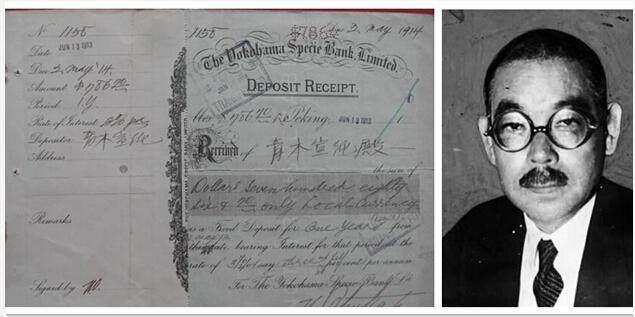 Nº 1155
Date JUN 13 1913
Due 3. May '14.
Amount $786 70
Period 1 Y.
Rate of Interest
Depositor 青木宣純
Address
Remarks
Signed by
1155
$786
3. May 1914
The Yokohama Specie Bank, Limited.
DEPOSIT RECEIPT.
$786 70 Peking, JUN 13 1913
Received of 青木宣純殿
the sum of
Dollars Seven hundred eighty
six & 70 only Local Currency
as a Fixed Deposit for One Year from
this date bearing Interest for that period at the
rate of 3½% (say three per cent per annum
For The Yokohama Specie Bank, Ld